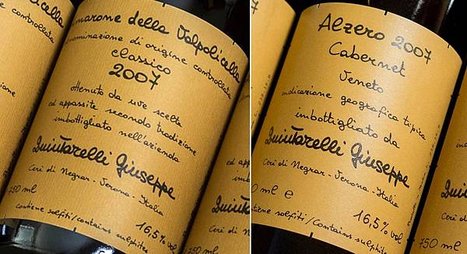 marone della Valpolicella
nominazione di origine controllata
classico
2007
Ottenuto da uve scelte
ed appassite secondo tradizione
imbottigliato nell'azienda
Quintarelli Giuseppe
Cerè di Negrar - Verona - Italia
750 ml 16,5% vol
Contiene solfiti/contains sulphites
Alzero 2007
Cabernet
Veneto
indicazione geografica tipica
imbottigliato da
Quintarelli Giuseppe
Cerè di Negrar - Verona - Italia
750 ml e 16,5% vol
Contiene solfiti/contains sulphites